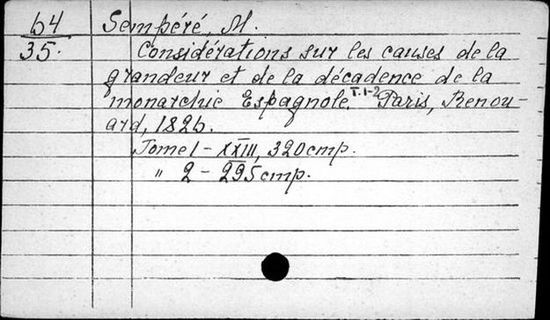 64 Sempéré, M.
35. Considérations sur les causes de la
grandeur et de la décadence de la
monarchie Espagnole. T.1-2 Paris, Renou-
ard, 1826.
Tome 1 - XXIII, 320 cmp.
" 2 - 295 cmp.